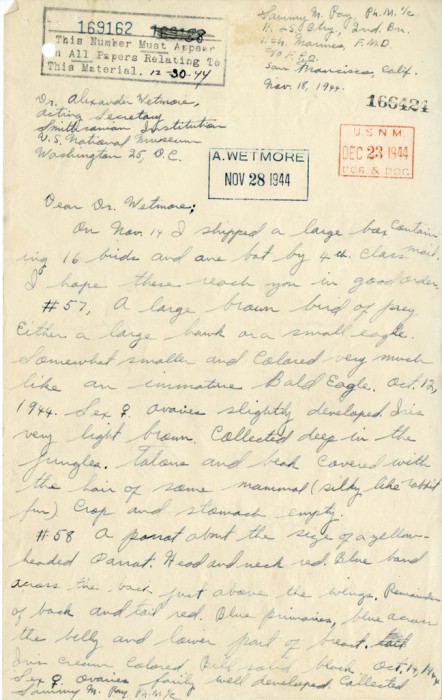 169162
This Number Must Appear
on All Papers Relating To
This Material. 12-30-44
Sammy M. Ray, Ph.M. 1/c
H. & S. Btry., 2nd Bn.
Marines, F.M.F.
F.P.O.
San Francisco, Calif.
Nov. 18, 1944.
166424
Dr. Alexander Wetmore,
Acting Secretary
Smithsonian Institution
U.S. National Museum
Washington 25, D.C.
A. WETMORE
NOV 28 1944
U.S.N.M.
DEC 23 1944
COR. & DOC.
Dear Dr. Wetmore;
On Nov. 14 I shipped a large box contain
ing 16 birds and one bat by 4th class mail.
I hope these reach you in good order.
#57, A large brown bird of prey
Either a large hawk or a small eagle.
Somewhat smaller and colored very much
like an immature Bald Eagle. Oct. 12,
1944. Sex ♀ ovaries slightly developed. Iris
very light brown. Collected deep in the
jungles. Talons and beak covered with
the hair of some mammal (silky like rabbit
fur) Crop and stomach empty.
#58 A parrot about the size of a yellow-
headed Parrot. Head and neck red. Blue band
across the back just above the wings. Remainder
of back and tail red. Blue primaries, blue across
the belly and lower part of breast.
Iris cream colored Bill solid black Oct. 14, 1944
Sex ♀ ovaries fairly well developed. Collected
Sammy M. Ray Ph.M. 1/c